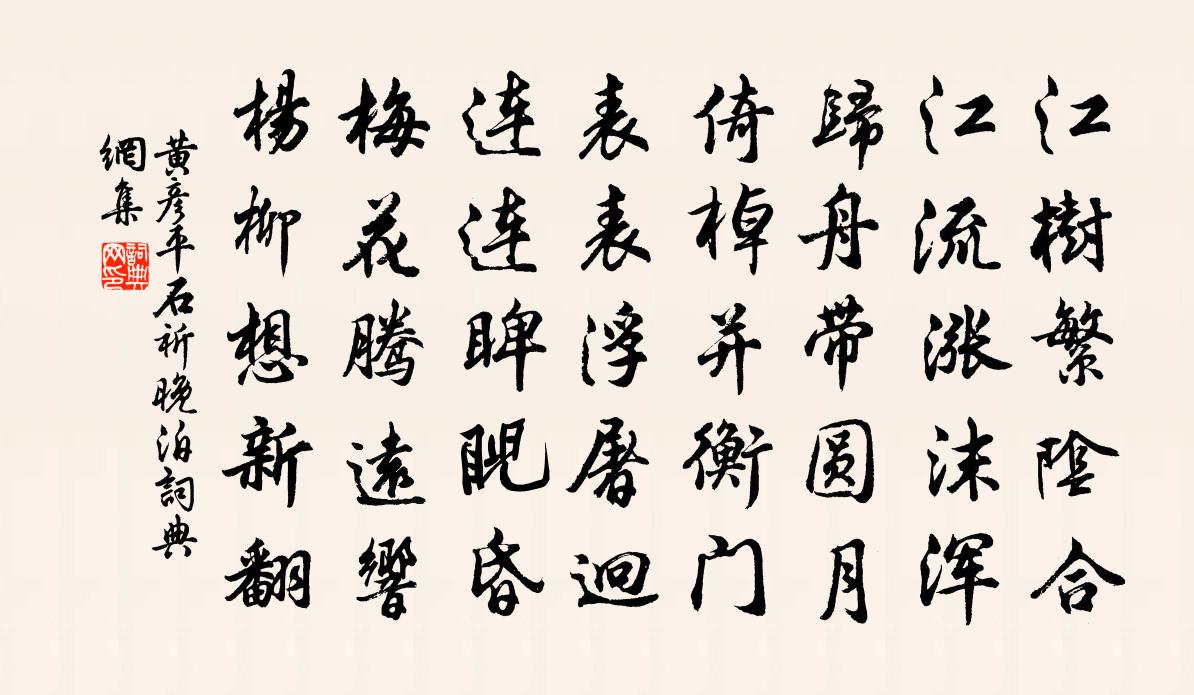 江樹繁陰合
江流涨沫浑
歸舟带圆月
倚棹并衡门
表表浮屠迥
连连睥睨昏
梅花腾遠響
楊柳想新翻
黄彦平石祈晚泊詞典
網集
詞典网印